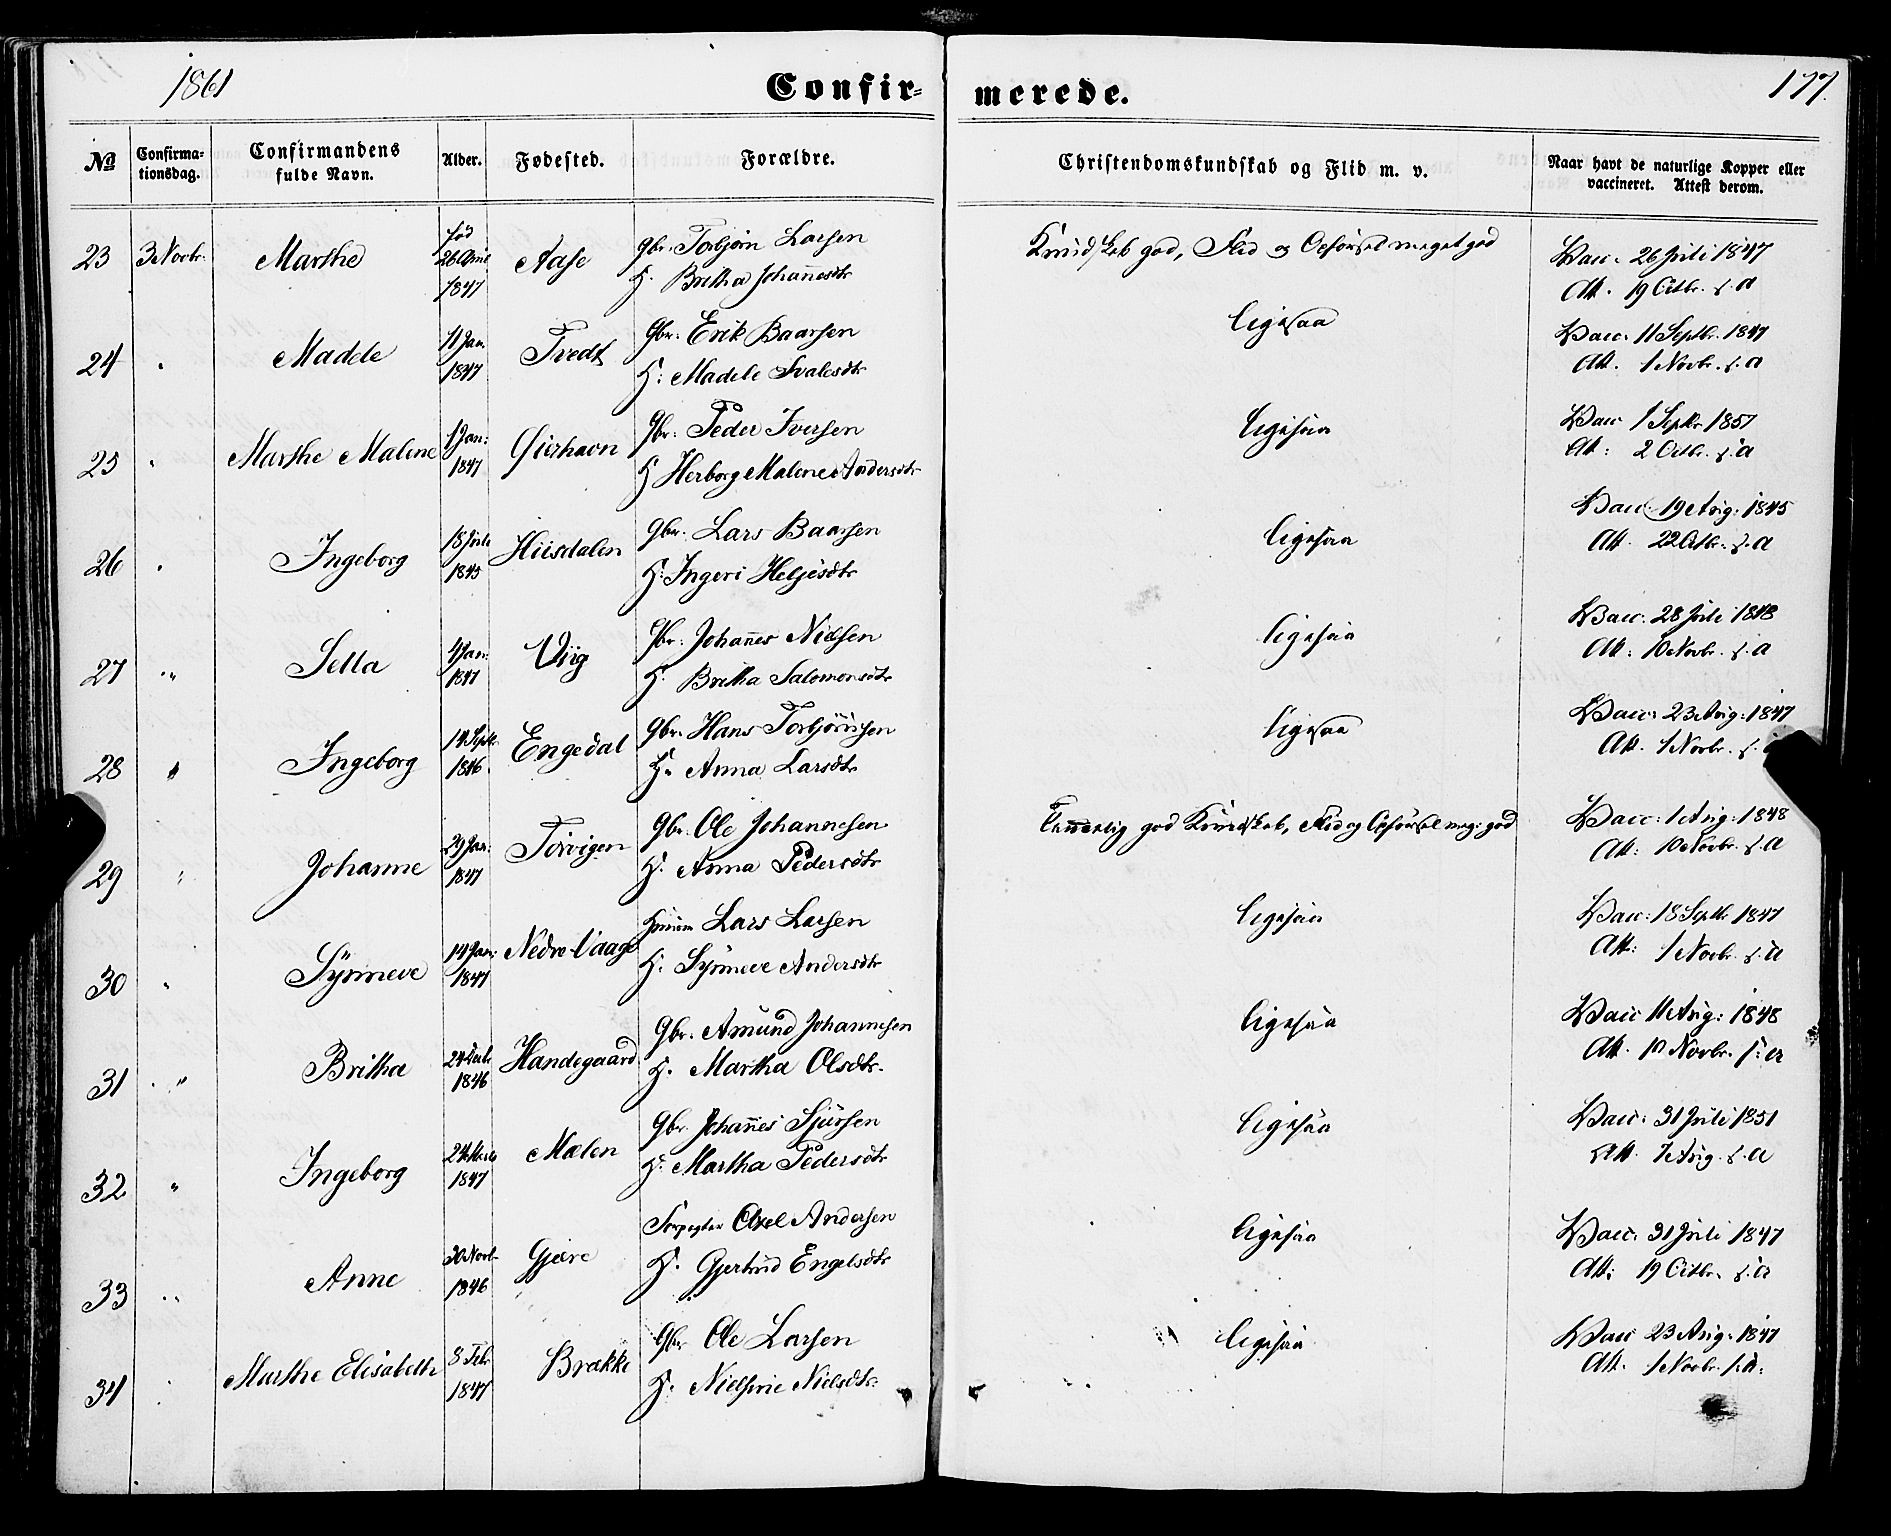 1861
Confir-
merede.
177.
No
Confirma-
tionsdag.
Confirmandens
fulde Navn.
Alder.
Fødested.
Forældre.
Christendomskundskab og Flid m. v.
Naar havt de naturlige Kopper eller
vaccineret. Attest derom.
23 3 Novbr. Marthe fød 26 April 1847 Aase Gbr. Torbjørn Larsen
H. Britha Johannesdtr
Kundskab god, Flid og Opførsel meget god
Vacc. 26 Juli 1847
Att. 19 Octbr. s. a
24 " Madele 11 Jan. 1847 Tvedt Gbr. Erik Baarsen
H. Madele Ivalesdtr
ligesaa
Vacc. 11 Septbr. 1847
Att. 1 Novbr. s. a
25 " Marthe Malene 1 Jan: 1847 Gierhavn Gbr. Peder Iversen
H Herborg Malene Andersdtr
ligesaa
Vacc 1 Septr 1851
Att: 2 Octbr. s. a
26 " Ingeborg 18 Juli 1845 Huusdalen Gbr. Lars Baarsen
H. Ingeri Heljesdtr
ligesaa
Vacc. 19 Aug: 1845
Att. 22 Octbr. s. a
27 " Sella 4 Jan: 1847 Viig Gbr. Johannes Nielsen
H. Britha Salomonsdtr
ligesaa
Vacc. 28 Juli 1848
Att: 10 Novbr. s. a
28 " Ingeborg 14 Septr. 1846 Engedal Gbr. Hans Torbjørnsen
H. Anna Larsdtr
ligesaa
Vacc: 23 Aug: 1847
Att. 1 Novbr. s.
29 " Johanne 29 Jan: 1847 Torvigen Gbr. Ole Johannesen
H. Anna Pedersdtr
Temmelig god Kundskab, Flid og Opførsel meg: god
Vacc: 1 Aug: 1848
Att: 10 Novbr. s. a
30 " Synneve 14 Jan: 1847 Nedre Vaage Huusm Lars Larsen
H. Synneve Andersdtr
ligesaa
Vacc: 18 Septbr 1847
Att: 1 Novbr. s. a
31 " Britha 24 Decbr 1846 Handegaard Gbr. Amund Johannesen
H. Martha Olsdtr.
ligesaa
Vacc 11 Aug: 1848
Att. 10 Novbr. s. a
32 " Ingeborg 1847 Mælen Gbr. Johannes Sjursen
H. Martha Pedersdtr
ligesaa
Vacc: 31 Juli 1851
Att. 7 Aug. s. a
33 " Anne 30 Novbr 1846 Gjære Forpagter Axel Andersen
H. Gjertrud Engelsdtr
ligesaa
Vacc. 31 Juli 1847
Att: 19 Octbr. s. a
34 " Marthe Elisabeth 8 Febr 1847 Brakke Gbr Ole Larsen
H. Nielsine Nielsdtr.
ligesaa
Vacc 23 Aug: 1847
Att. 1 Novbr. s. a.